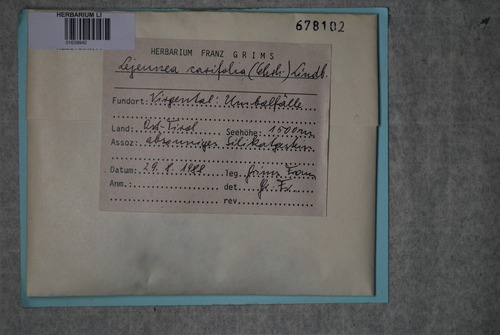 HERBARIUM LI
678102
HERBARIUM FRANZ GRIMS
Lejeunea cavifolia (Ehrh.) Lindb.
Fundort: Virgental: Umbalfälle
Land: Ost-Tirol Seehöhe: 1500m
Assoz:
Datum: 29.8.1988 leg. Grims Franz
Anm.: det. Gr. Fr.
rev.